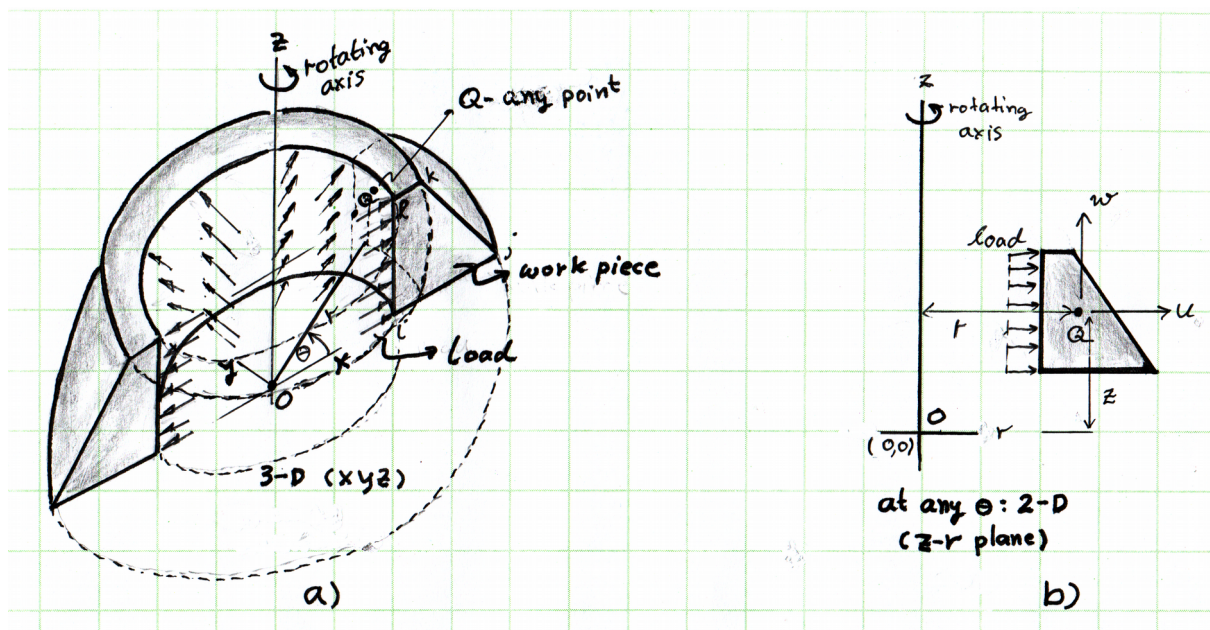 z
rotating
axis
Q- any point
Q
k
l
j
work piece
i
load
r
θ
x
y
O
3-D (xyz)
a)
z
rotating
axis
w
load
r
Q
u
z
O
r
(0,0)
at any θ: 2-D
(z-r plane)
b)